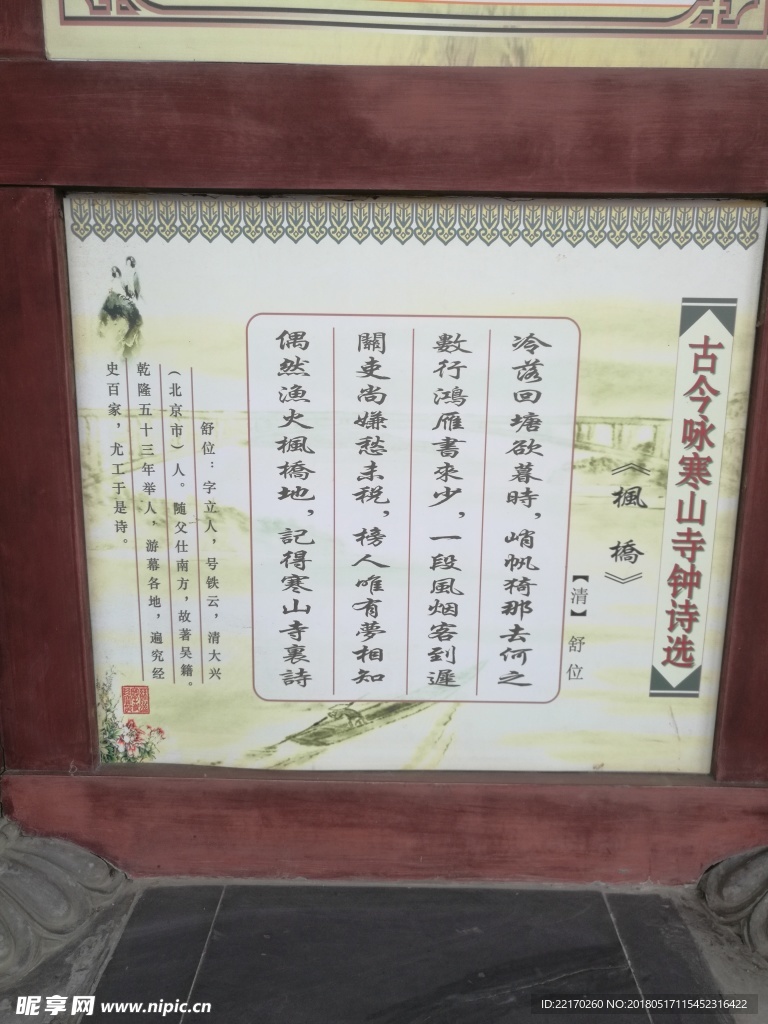 古今咏寒山寺钟诗选
《楓橋》
【清】舒位
冷落回塘欲暮時，峭帆猗那去何之
數行鴻雁書來少，一段風烟客到遲
關吏尚嫌愁未税，榜人唯有夢相知
偶然漁火楓橋地，記得寒山寺裏詩
舒位：字立人，号铁云，清大兴
（北京市）人。随父仕南方，故著吴籍。
乾隆五十三年举人，游幕各地，遍究经
史百家，尤工于是诗。
昵享网 www.nipic.cn
ID:22170260 NO:20180517115452316422